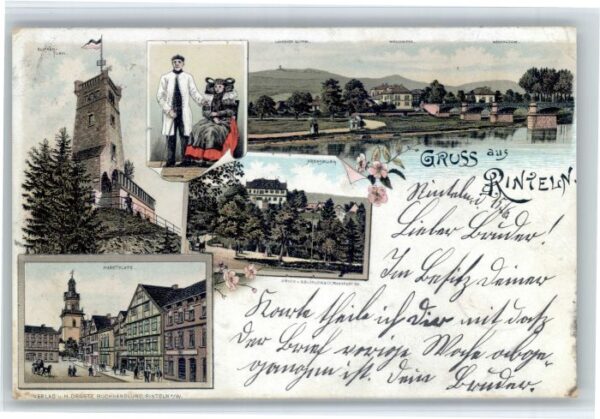 KLIPPEN-
TURM.
GRUSS aus
RINTELN.
ARENSBURG
MARKTPLATZ.
Rinteln d.
Lieber Bruder!
Im Besitz deiner
Karte theile ich dir mit daß
der Brief vorige Woche abge-
gangen ist. Dein Bruder.
VERLAG v. H. BUCHHANDLUNG, RINTELN a/W.